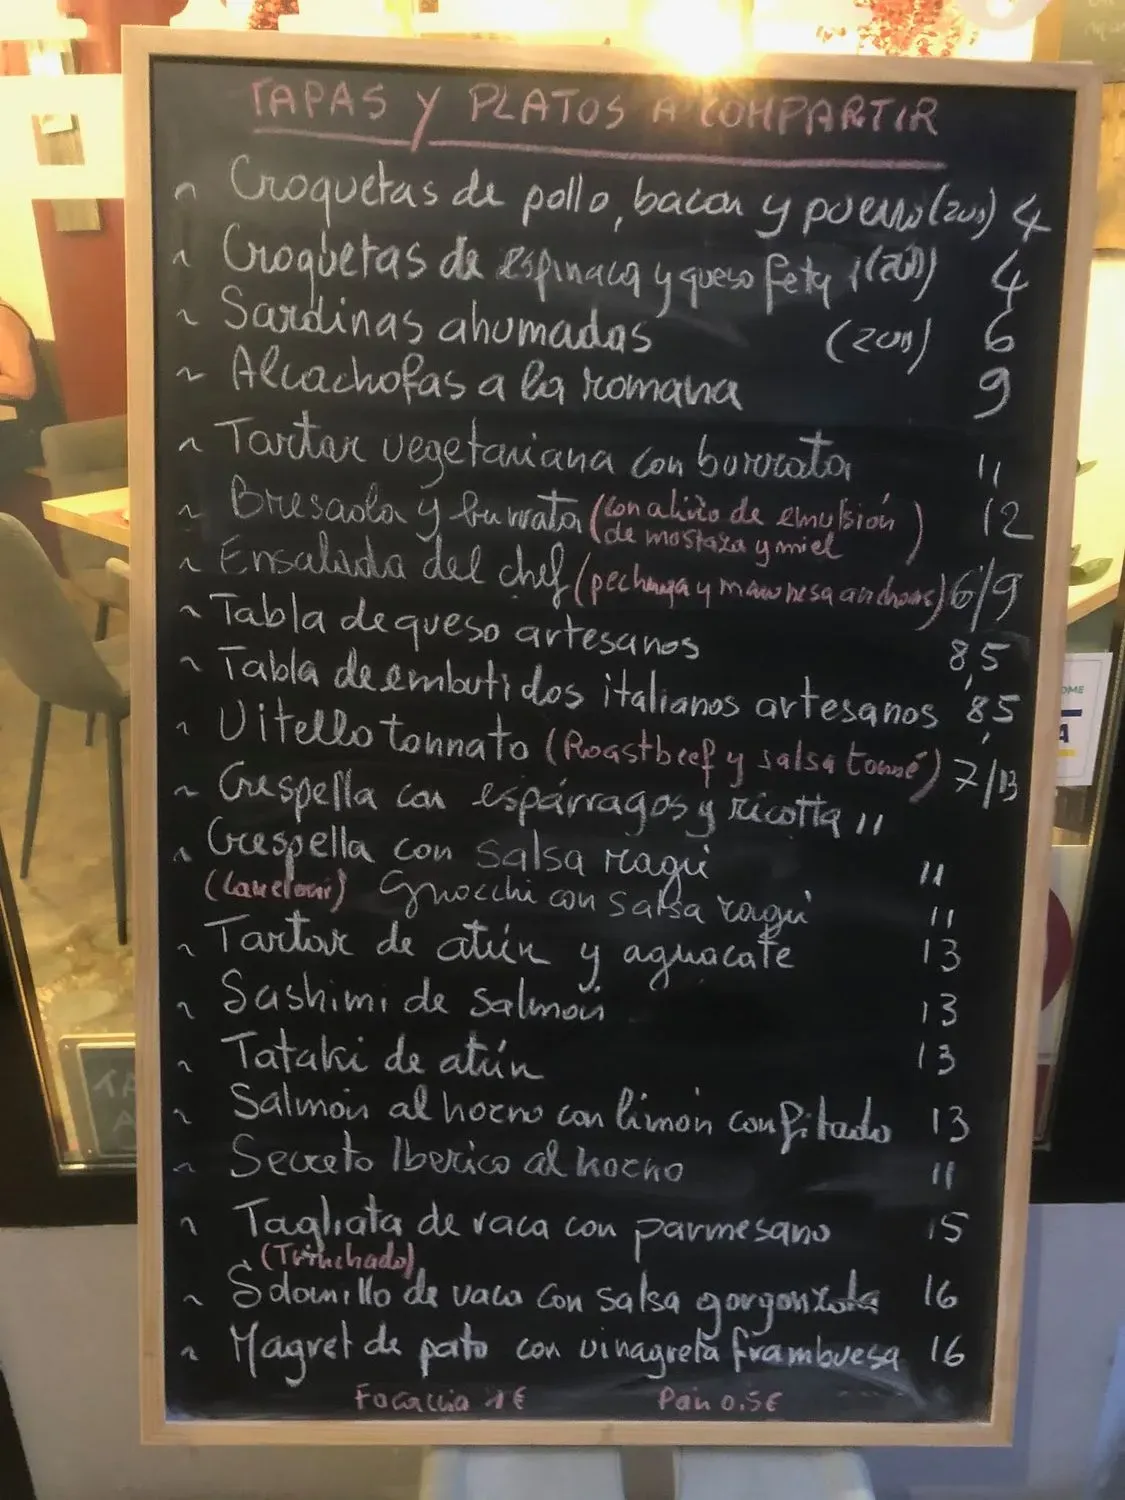 TAPAS Y PLATOS A COMPARTIR
~ Croquetas de pollo, bacon y puerro (2UD) 4
~ Croquetas de espinaca y queso feta (2UD) 4
~ Sardinas ahumadas (2UD) 6
~ Alcachofas a la romana 9
~ Tartar vegetariana con burrata 11
~ Bresaola y burrata (con aliño de emulsión de mostaza y miel) 12
~ Ensalada del chef (pechuga y mayonesa anchoas) 6/9
~ Tabla de queso artesanos 8,5
~ Tabla de embutidos italianos artesanos 8,5
~ Vitello tonnato (Roastbeef y salsa tonné) 7/13
~ Crespella con espárragos y ricotta 11
~ Crespella con salsa ragú 11
(Caneloni) Gnocchi con salsa ragú 11
~ Tartar de atún y aguacate 13
~ Sashimi de salmón 13
~ Tataki de atún 13
~ Salmón al horno con limón confitado 13
~ Secreto Iberico al horno 11
~ Tagliata de vaca con parmesano 15
(Trinchado)
~ Solomillo de vaca con salsa gorgonzola 16
~ Magret de pato con vinagreta frambuesa 16
Focaccia 1€ Pan 0.5€